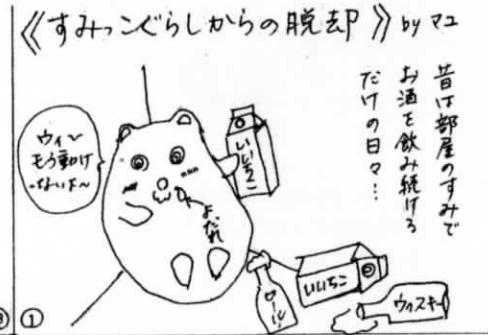 《すみっこぐらしからの脱却》by マユ
昔は部屋のすみで
お酒を飲み続ける
だけの日々…
ウィ〜
もう動け
ないよ〜
いいちこ
よだれ
いいちこ
ウィスキー
①